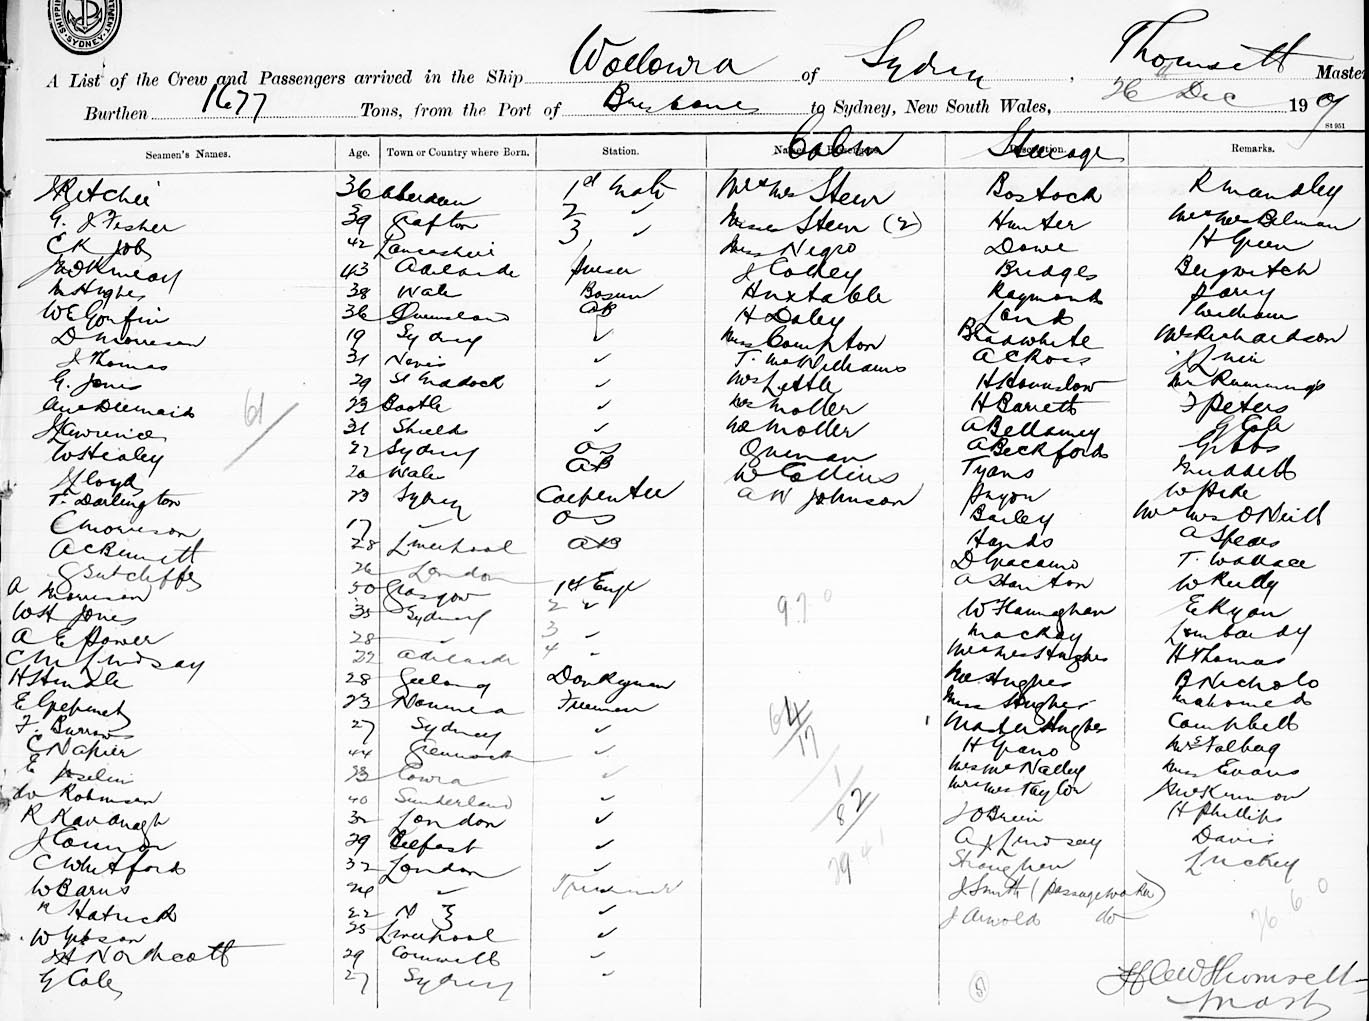 SHIPPING DEPARTMENT SYDNEY
A List of the Crew and Passengers arrived in the Ship Wollowra of Sydney, Thomsett Master
Burthen 1677 Tons, from the Port of Brisbane to Sydney, New South Wales, 26th Dec 1907
St 951
Cabin Steerage
Seamen's Names. Age. Town or Country where Born. Station. Names of Passengers. Description. Remarks.
J Ritchie 36 Aberdeen 1st Mate Mr & Mrs Steer Bostock R Mandley
G. J Fisher 39 Grafton 2 ✓ Misses Steer (2) Hunter Mr & Mrs Belman
C K Job 42 Lancashire 3 ✓ Miss Negro Dawe H Green
43 Adelaide Purser J Colley Bridges
M Hughes 38 Wales Bosun Huxtable Raymond Parry
W E Gonfin 36 Queensland AB H Daley
D Morrison 19 Sydney ✓ Miss Compton Braswhite Mrs Richardson
J Thomas 31 Nevis T. McWilliams A Cross
G. Jones 29 St Madock ✓ Mrs Little H Hounslow Mr Rummings
23 Bootle ✓ Mrs Moller H Barrett J Peters
J Lawrence 31 Shields ✓ Wd Moller A Bellamey G Cole
W Healey 22 Sydney OS A Beckford Gibbs
J Lloyd 20 Wales AB W Collins Tyans
T. Darlington 23 Sydney Carpenter A W Johnson Pryon
C Morrison 17 " OS Bailey Mr & Mrs O'Neill
A C Bennett 28 Liverpool AB Hands A Spears
G Sutcliffe 26 London T. Wallace
A Morrison 50 Glasgow 1st Engr A Stanton W Reidy
W H Jones 35 Sydney 2 " W Flannghan E Ryan
A E Power 28 " 3 " Mackay Lombardy
C M Lindsay 22 Adelaide 4 " Mr & Mrs Hughes H Thomas
H Hindle 28 Geelong Donkeyman Mr Hughes B Nichols
23 Noumea Fireman Miss Hughes Mahomed
F. Burrows 27 Sydney ✓ Master Hughes Campbell
C Napier 44 Greenock ✓ H Grano Mrs Folberg
E Joselin 23 Cowra ✓ Mrs McNalley Miss Evans
Robinson 40 Sunderland ✓ Mr & Mrs Taylor J McKinnon
R Kavanagh 32 London ✓ J O'Brien H Phillips
J Connor 29 Belfast ✓ A J Lindsay Davis
C Whitford 32 London ✓ Stranghen Luckey
W Barns " Trimmer J Smith (passage worker)
Hatrick 22 N Z ✓ J Arnold do
W Gibson 25 Liverpool ✓
Northcott 29 Cornwall ✓
G Cole 27 Sydney "
61
97
64
17
1
82
29
Thomsett
Mast